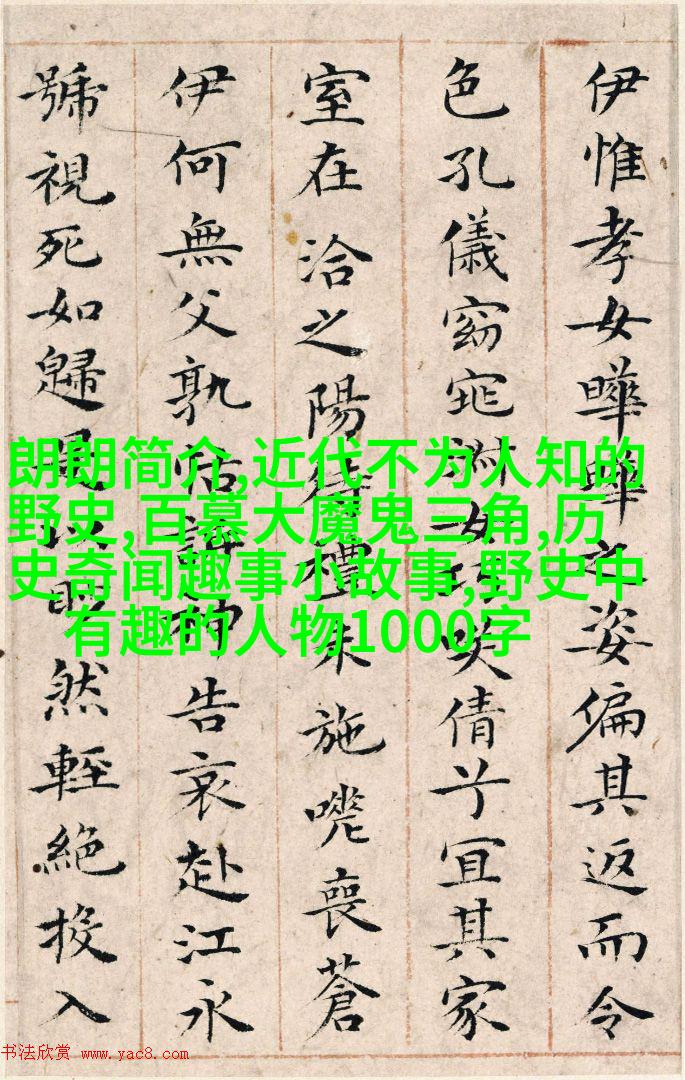 伊惟孝女曄曄之姿偏其返而令
色孔儀窈窕淑女巧咲倩兮宜其家
室在洽之陽待禮未施嗟喪蒼
伊何無父孰怙訴神告哀赴江永
號視死如歸是以眇然輕絕投入
朗朗简介,近代不为人知的
野史,百慕大魔鬼三角,历
史奇闻趣事小故事,野史中
有趣的人物1000字
书法欣赏 www.yac8.com